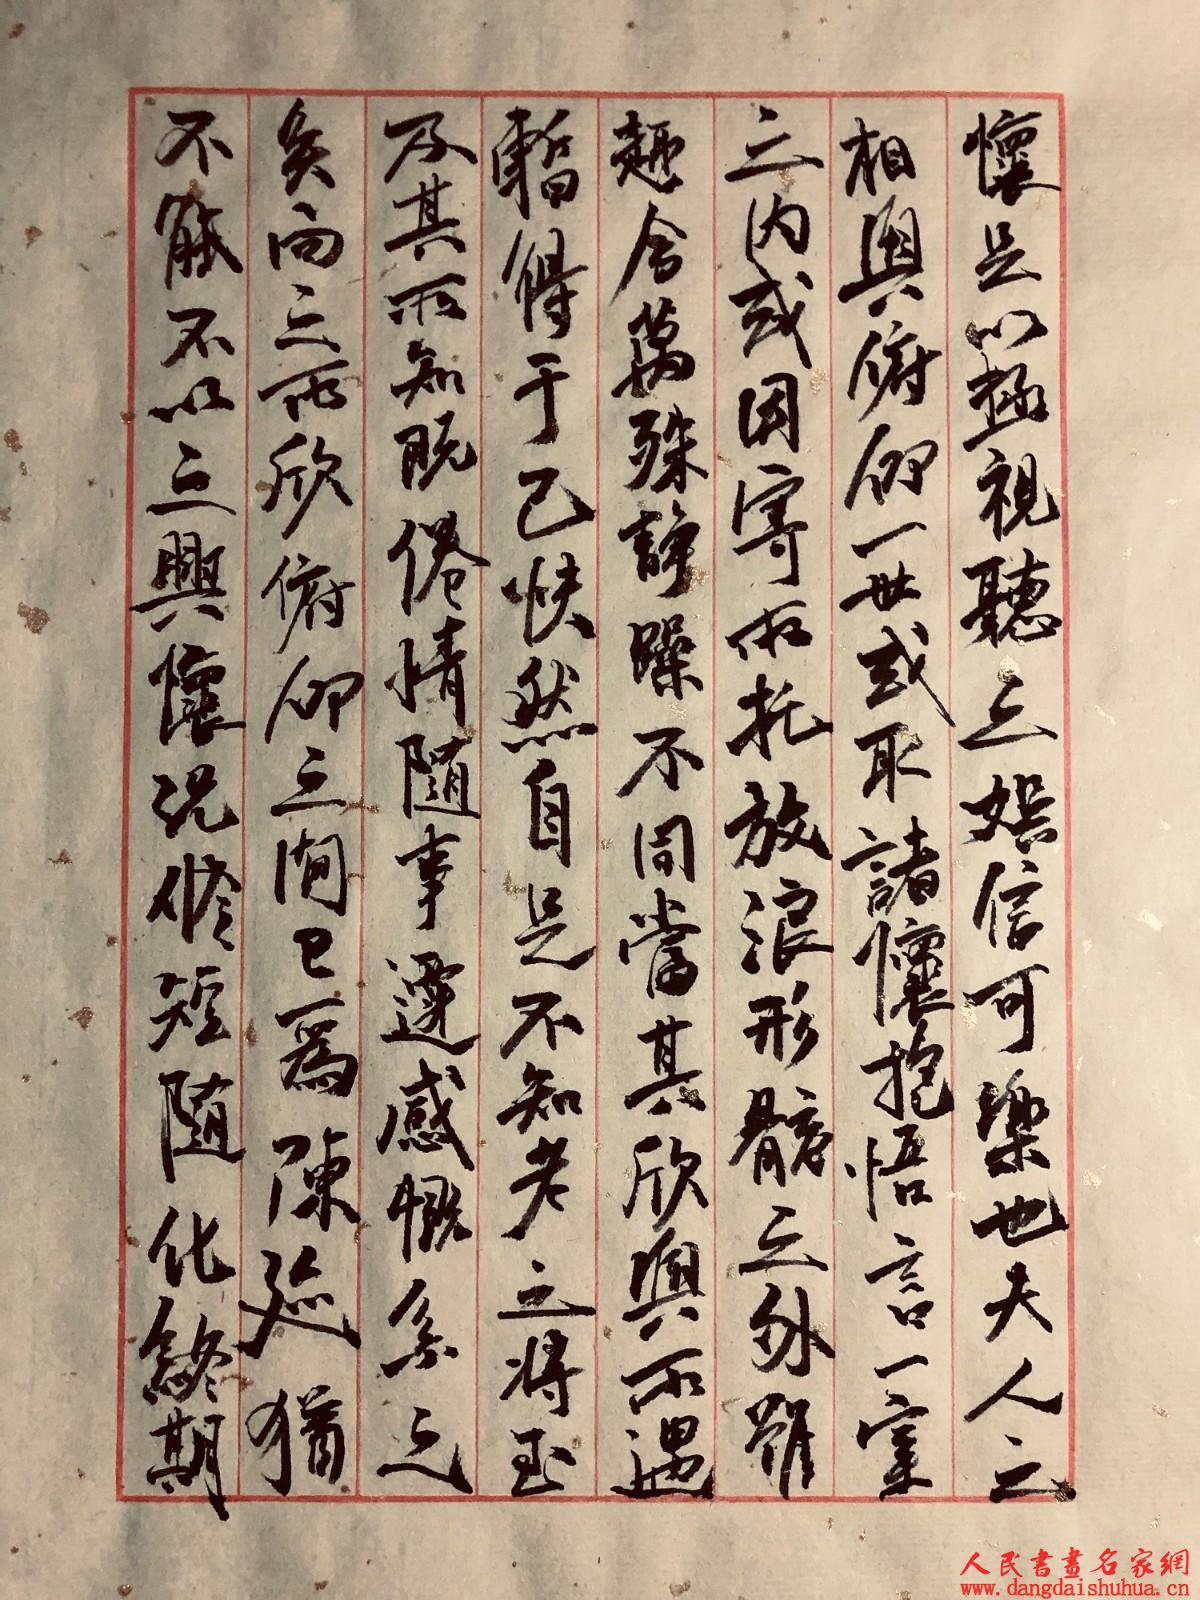 懷足以極視聽之娛信可樂也夫人之
相與俯仰一世或取諸懷抱悟言一室
之內或因寄所托放浪形骸之外雖
趣舍萬殊靜躁不同當其欣與所遇
暫得于己快然自足不知老之將至
及其所知既倦情隨事遷感慨系之
矣向之所欣俯仰之間已爲陳迹猶
不能不以之興懷況修短隨化終期
人民書畫名家網
www.dangdaishuhua.cn